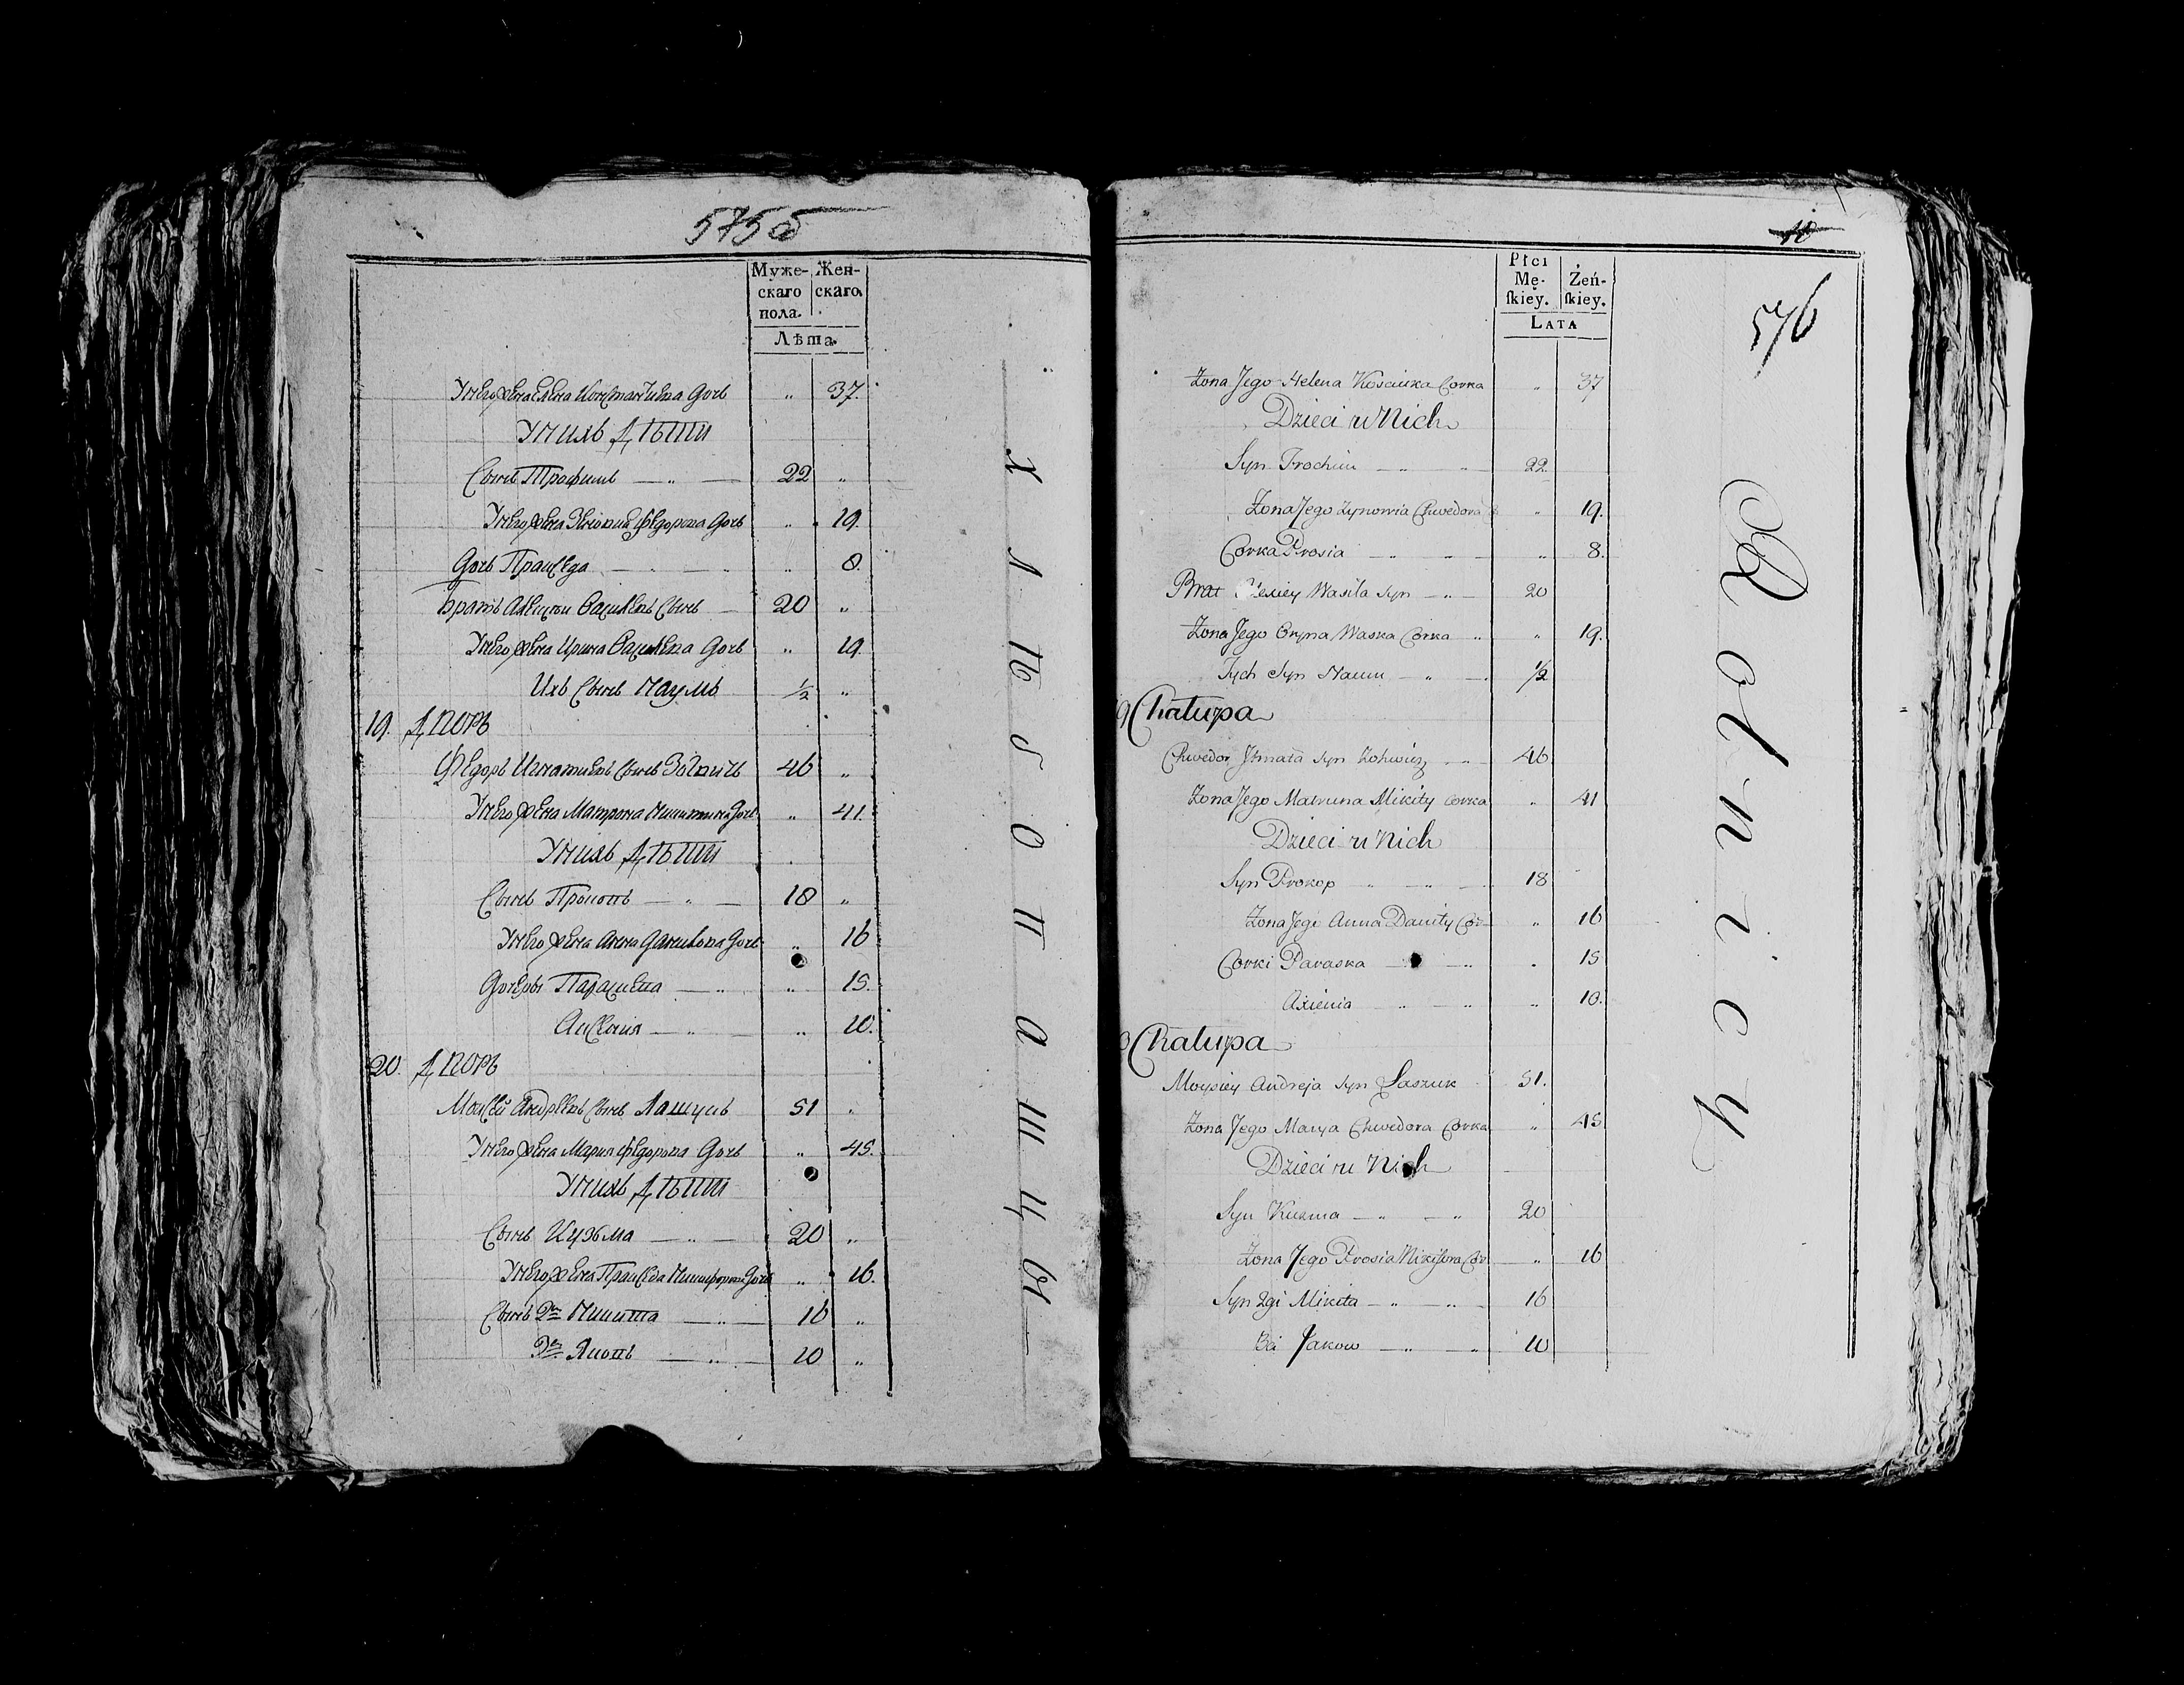 575 об
Муже-
скаго
пола.
Жен-
скаго.
Лѣта.
У него жена Елена Константинова дочь " 37.
У нихъ дѣти
Сынъ Трофимъ — " — 22 "
У него жена Зеновия Федорова дочь " 19.
Дочь Праскеда — " — " 8.
Братъ Алексѣи Василевъ сынъ — 20 "
У него жена Ирина Василева дочь " 19
Ихъ сынъ Наумъ ½ "
19. Дворъ
Федоръ Игнатиевъ сынъ 46 "
У него жена Матрона Никитина дочь " 41.
У нихъ дѣти
Сынъ Прокопъ — " — 18 "
У него жена Анна Данилова дочь " 16
Дочери Параскева — " " 15.
Аксения — " — " 10.
20. Дворъ
Моисей Андреевъ сынъ Лашукъ 51 "
У него жена Мария Федорова дочь " 45.
У нихъ дѣти
Сынъ Кузьма — " — 20 "
У него жена Праскеда Никифорова дочь " 16.
Сынъ 2й Никита — " 16 "
3й Яковъ — " — 10 "
хлѣбопашцы
10
576
Płci
Mę-
skiey.
Żeń-
skiey.
Lata
Żona Jego Helena Kosciuka Corka " 37
Dzieci u Nich
Syn Trochim — " " 22
Żona Jego Zynowia Chwedora " 19.
Corka Prosia — " " — " 8.
Brat Olexiey Wasila Syn — " — 20
Żona Jego Oryna Waska Corka " " 19.
Tych Syn Naum — " — ½
Chałupa
Chwedor Jhnata Syn 46
Żona Jego Matruna Mikity Corka " 41
Dzieci u Nich
Syn Prokop " — " — 18
Żona Jego Anna Daniły Cor " 16
Corki Paraska — " 15
Axienia " — " " 10.
Chałupa
Moysiey Andreja Syn Łaszuk 51.
Żona Jego Marya Chwedora Corka " 45
Dzieci u Nich
Syn Kuzma — " — " 20
Żona Jego Prosia Nikifora Cor " 16
Syn 2gi Mikita — " — " — 16
3ci Jakow — " — " 10
Rolnicy